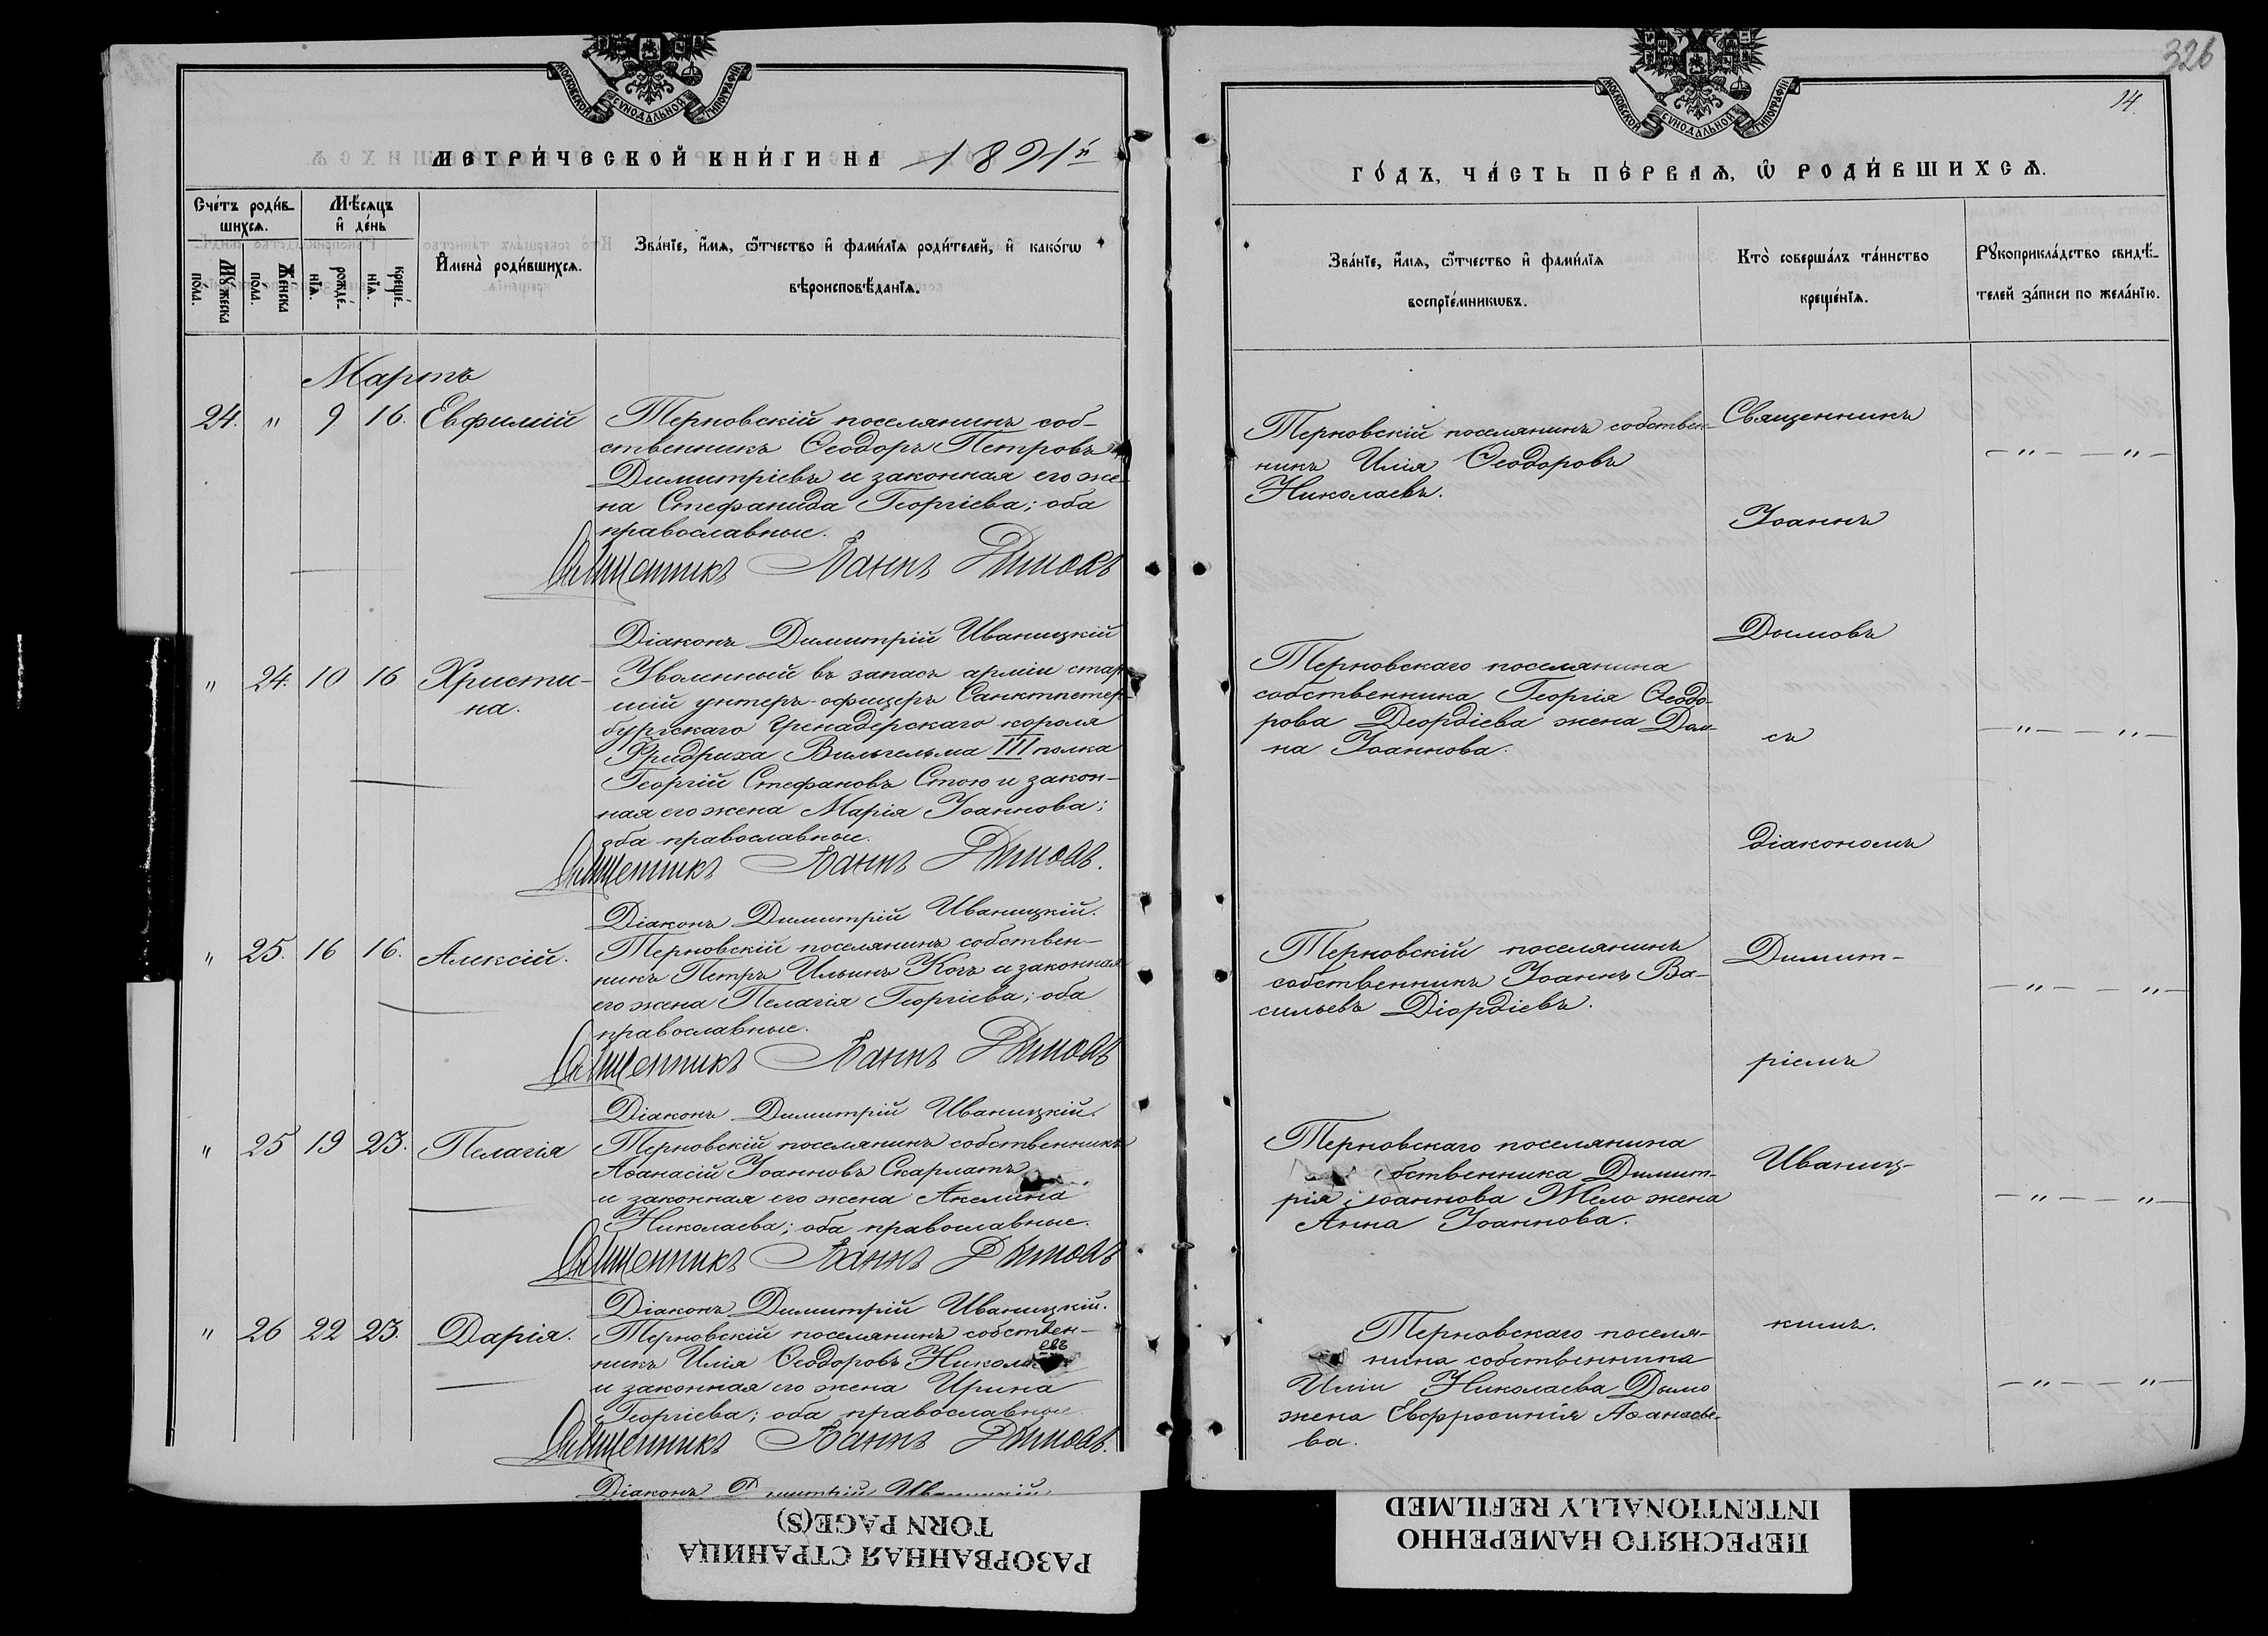 МОСКОВСКОЙ СѴНОДАЛЬНОЙ ТИПОГРАФІИ
МЕТРИ́ЧЕСКОЙ КНИ́ГИ НА 1891й
Сче́тъ роди́в-
шихсѧ.
Мѣ́сѧцъ
и҆ де́нь
И҆мена̀ роди́вшихсѧ.
Зва́нїе, и҆́мѧ, ѻ҆́тчество и҆ фами́лїѧ роди́телей, и҆ како́гѡ
вѣроисповѣ́данїѧ.
Мꙋ́жеска
по́ла.
Же́нска
по́ла.
рожде́-
нїѧ.
креще́-
нїѧ.
Мартъ
24. " 9 16. Евфимій
Терновскій поселянинъ соб-
ственникъ Ѳеодоръ Петровъ
Димитріевъ и законная его же-
на Стефанида Георгіева; оба
православные.
Священникъ Іоаннъ Дымовъ
Діаконъ Димитрій Иваницкій
" 24. 10 16 Христи-
на.
Уволенный въ запасъ арміи стар-
шій унтеръ-офицеръ Санктпетер-
бургскаго Гренадерскаго короля
Фридриха Вильгельма III полка
Георгій Стефановъ Стою и закон-
ная его жена Марія Іоаннова;
оба православные.
Священникъ Іоаннъ Дымовъ.
Діаконъ Димитрій Иваницкій.
" 25. 16 16. Алексій.
Терновскій поселянинъ собствен-
никъ Петръ Ильинъ Кочъ и законная
его жена Пелагія Георгіева; оба
православные.
Священникъ Іоаннъ Дымовъ
Діаконъ Димитрій Иваницкій.
" 25 19 23. Пелагія
Терновскій поселянинъ собственникъ
Аѳанасій Іоанновъ Скарлатъ
и законная его жена Акелина
Николаева; оба православные.
Священникъ Іоаннъ Дымовъ
Діаконъ Димитрій Иваницкій.
" 26 22 23. Дарія.
Терновскій поселянинъ собствен-
никъ Илія Ѳеодоровъ Николаевъ
и законная его жена Ирина
Георгіева; оба православные.
Священникъ Іоаннъ Дымовъ.
Діаконъ Димитрій Иваницкій
РАЗОРВАННАЯ СТРАНИЦА
TORN PAGE(S)
326
14.
МОСКОВСКОЙ СѴНОДАЛЬНОЙ ТИПОГРАФІИ
ГО́ДЪ, ЧА́СТЬ ПЕ́РВАѦ, Ѡ҆ РОДИ́ВШИХСѦ.
Зва́нїе, и҆́мѧ, ѻ҆́тчество и҆ фами́лїѧ
воспрїе́мникѡвъ.
Кто̀ соверша́лъ та́инство
креще́нїѧ.
Рꙋкоприкла́дство свидѣ́-
телей за́писи по жела́нїю.
Терновскій поселянинъ собствен-
никъ Илія Ѳеодоровъ
Николаевъ.
Терновскаго поселянина
собственника Георгія Ѳеодо-
рова Деордіева жена Дом-
на Іоаннова.
Терновскій поселянинъ
собственникъ Іоаннъ Ва-
сильевъ Діордіевъ.
Терновскаго поселянина
бственника Димит-
рія Іоаннова Мело жена
Анна Іоаннова.
Терновскаго поселя-
нина собственника
Иліи Николаева Дымо
жена Евфросинія Аѳанасье-
ва.
Священникъ
Іоаннъ
Дымовъ
съ
діакономъ
Димит-
ріемъ
Иваниц-
кимъ.
— " — — " —
— " — — " —
— " — — " —
— " — — " —
— " — — " —
ПЕРЕСНЯТО НАМЕРЕННО
INTENTIONALLY REFILMED